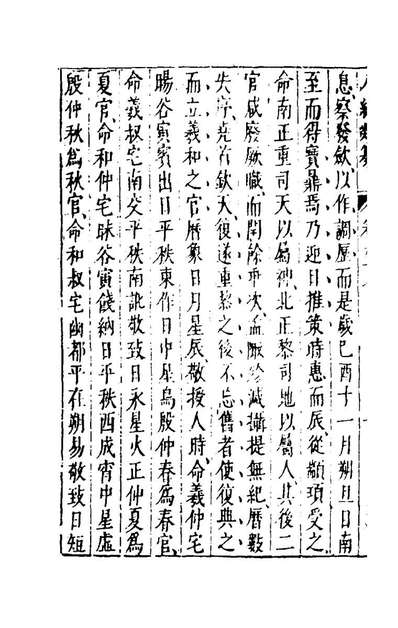 息察發斂以作調曆而是歲己酉十一月朔旦日南
至而得寶鼎焉乃迎日推策時惠而辰從顓頊受之
命南正重司天以屬神北正黎司地以屬人其後二
官咸廢厥職而閏餘乖次孟陬殄滅攝提無紀曆數
失序堯若欽天復遂重黎之後不忘舊者使復典之
而立羲和之官曆象日月星辰敬授人時命羲仲宅
暘谷寅賓出日平秩東作日中星鳥殷仲春為春官
命羲叔宅南交平秩南訛敬致日永星火正仲夏為
夏官命和仲宅昧谷寅餞納日平秩西成宵中星虛
殷仲秋為秋官命和叔宅幽都平在朔易敬致日短